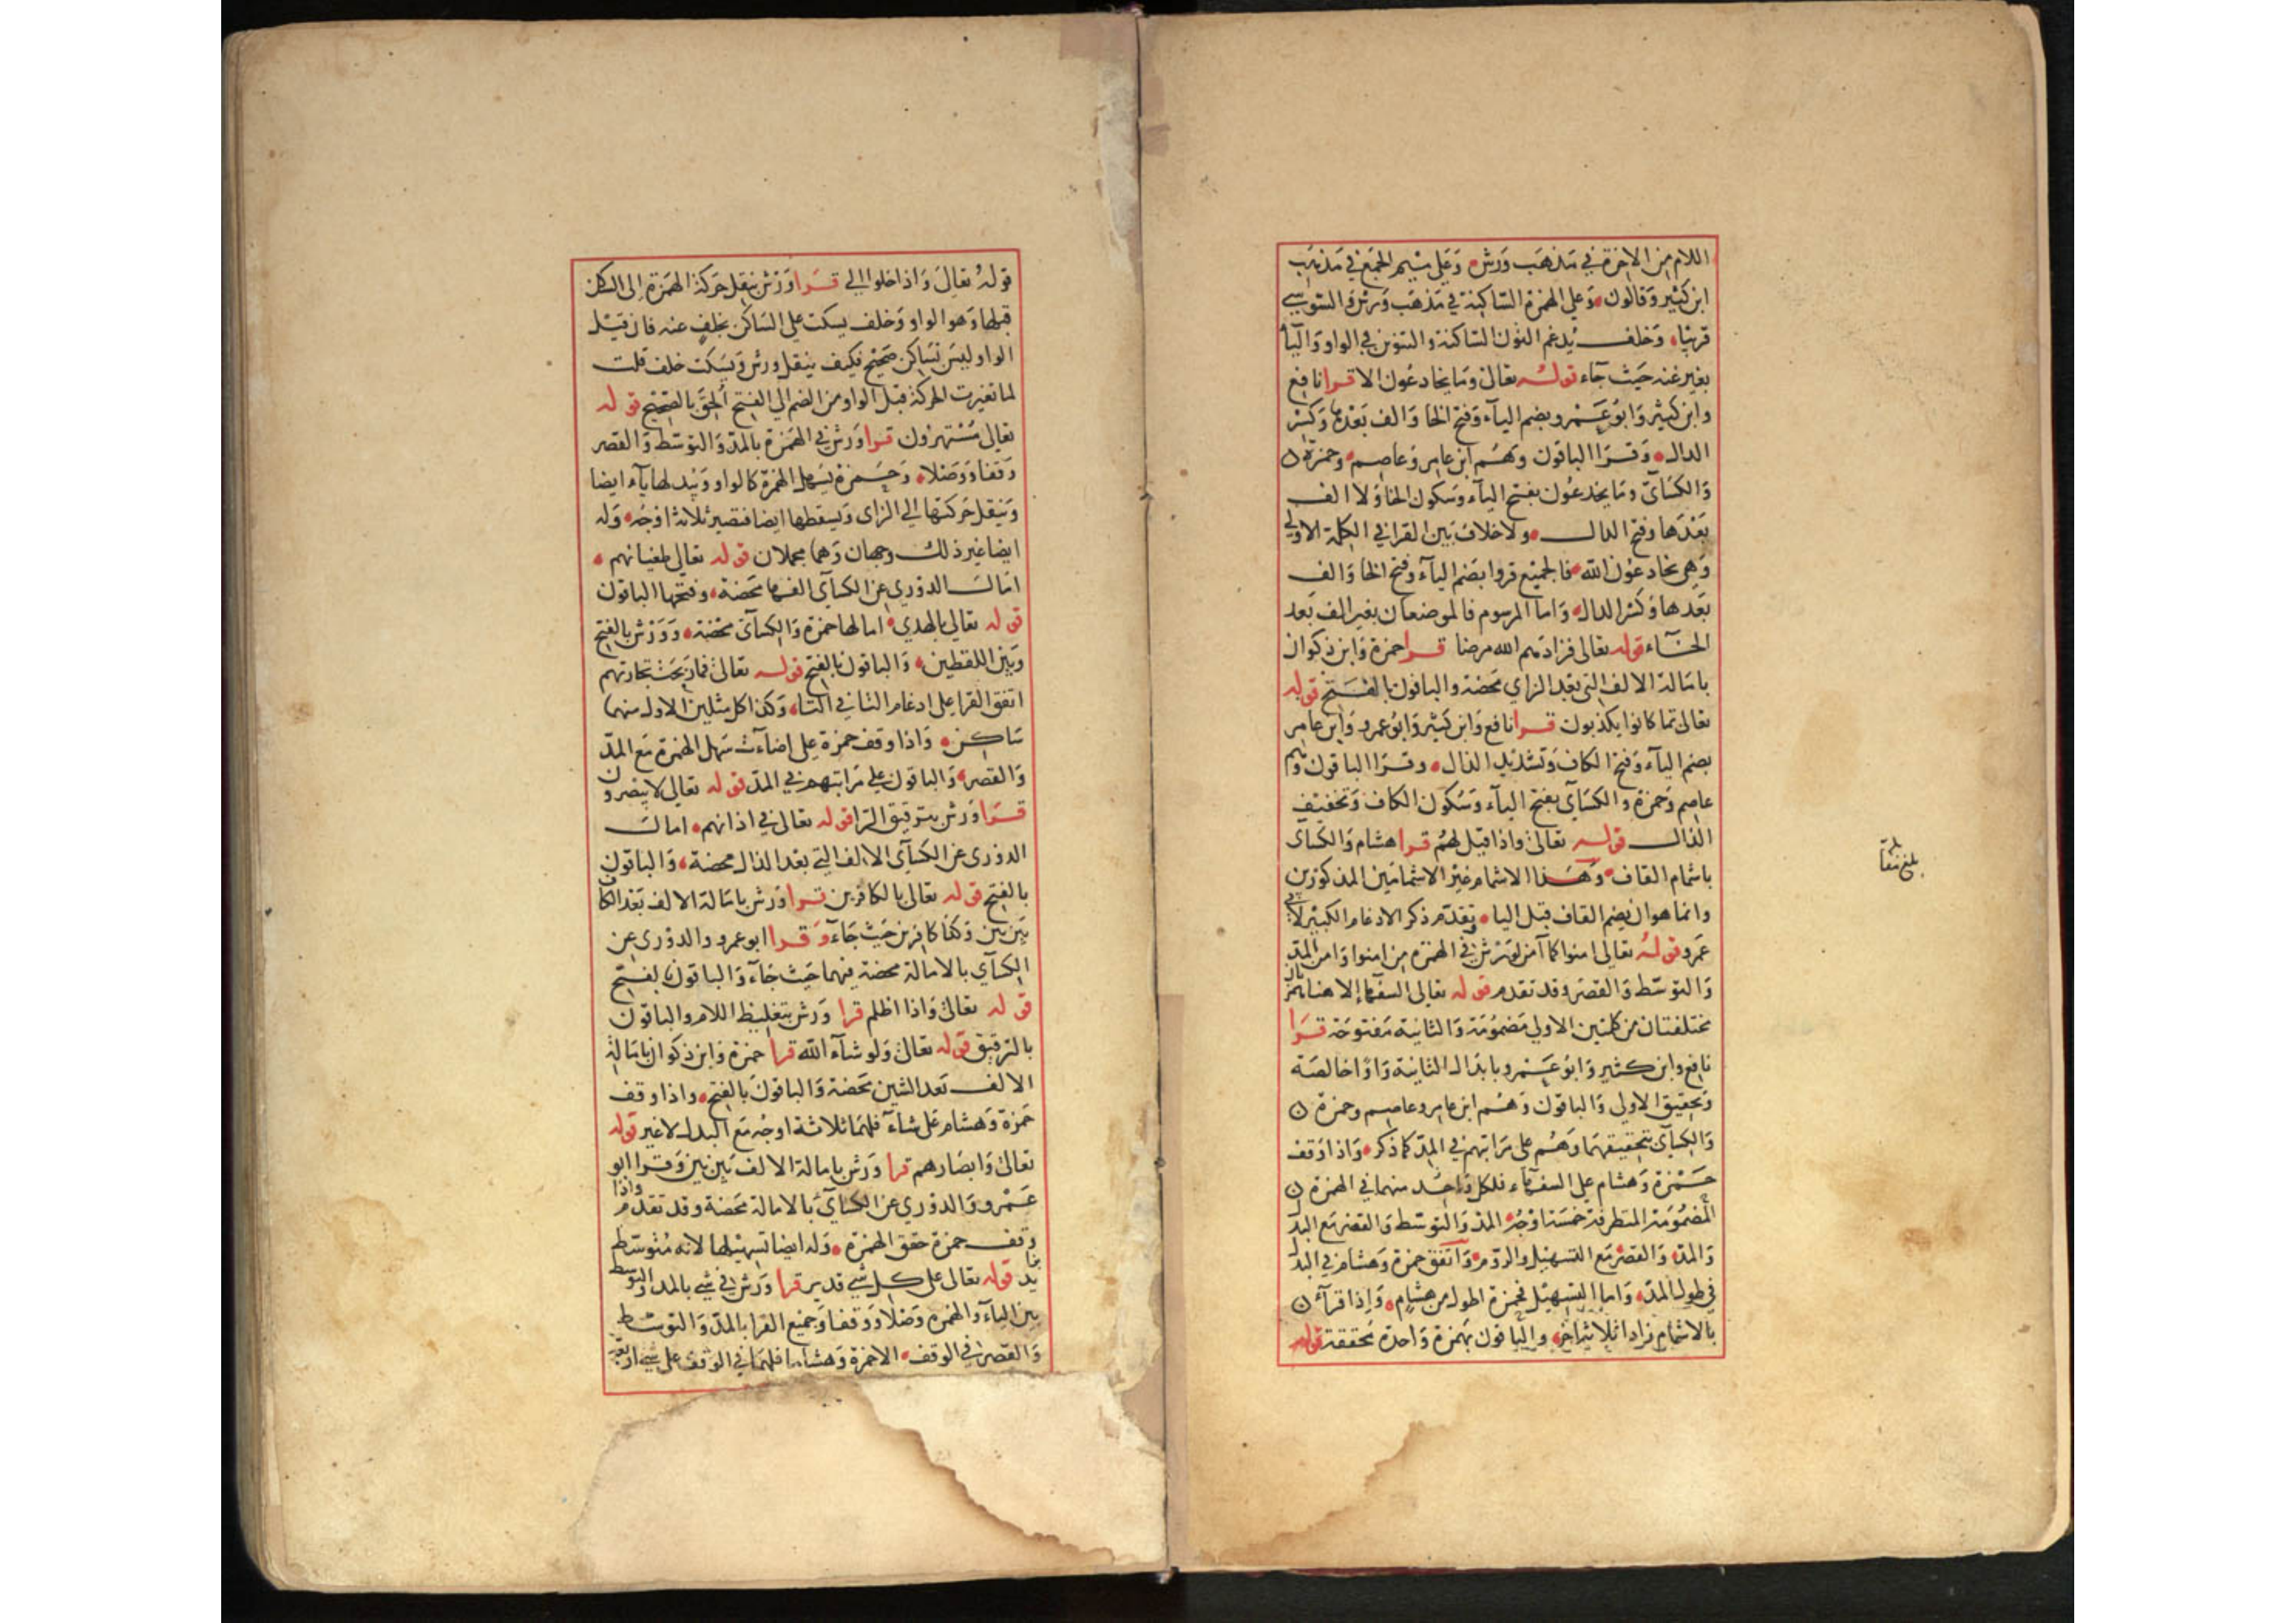 اللام من الاخرة في مذهب ورش وعلى ميم الجمع في مذهب
ابن كثير وقالون وعلى الهمزة الساكنة في مذهب ورش والسوسي
قريبا وخلف يدغم النون الساكنة والتنوين في الواو واليا
بغير غنه حيث جآء قوله تعالى وما يخادعون الا قرا نافع
وابن كثير وابو عمرو بضم اليآء وفتح الخا والف بعدها وكسر
الدال وقرا الباقون وهم ابن عامر وعاصم وحمزة
والكسآئ وما يخدعون بفتح اليآء وسكون الخا ولا الف
بعدها وفتح الدال ولا خلاف بين القرا في الكلمة الاولي
وهي يخادعون الله فالجميع قروا بضم اليآء وفتح الخا والف
بعدها وكسر الدال واما المرسوم فالموضعان بغير الف بعد
الخآء قوله تعالى فزادهم الله مرضا قرا حمزة وابن ذكوان
بامالة الالف التي بعد الزاي محضة والباقون بالفتح قوله
تعالى بما كانوا يكذبون قرا نافع وابن كثير وابو عمرو وابن عامر
بضم اليآء وفتح الكاف وتشديد الذال وقرا الباقون وهم
عاصم وحمزة والكسآي بفتح اليآء وسكون الكاف وتخفيف
الذال قوله تعالى واذا قيل لهم قرا هشام والكسآى
باشمام القاف وهذا الاشمام غير الاشمامين المذكورين
وانما هو ان يضم القاف قبل اليا وتقدم ذكر الادغام الكبير لابي
عمرو قوله تعالى امنوا كما آمن لورش في الهمزة من امنوا وامن المد
والتوسط والقصر وقد تقدم قوله تعالى السفهآء الا هنا همزتان
مختلفتان من كلمتين الاولي مضمومة والثانية مفتوحة قرا
نافع وابن كثير وابو عمرو بابدال الثانية واوا خالصة
وتحقيق الاولي والباقون وهم ابن عامر وعاصم وحمزة
والكسآي بتحقيقهما وهم على مراتبهم في المد كما ذكر واذا وقف
حمزة وهشام علي السفهآء فلكل واحد منهما في الهمزة
المضمومة المتطرفة خمسة اوجه المد والتوسط والقصر مع البدل
والمد والقصر مع التسهيل والروم واتفق حمزة وهشام في البدل
في طول المد واما التسهيل فحمزة اطول من هشام واذا قرآء
بالاشمام زادا ثلاثة اخر والباقون بهمزة واحدة محققة قوله
بلغ
قوله تعالى واذا خلوا الي قرا ورش بنقل حركة الهمزة الى الساكن
قبلها وهو الواو وخلف يسكت علي الساكن بخلف عنه فان قيل
الواو ليس بساكن صحيح فكيف ينقل ورش ويسكت خلف قلت
لما تغيرت الحركة قبل الواو من الضم الي الفتح الحق بالصحيح قوله
تعالى مستهزون قرا ورش في الهمزة بالمد والتوسط والقصر
وقفا ووصلا وحمزة يسهل الهمزة كالواو ويبدلها يآء ايضا
وينقل حركتها الي الزاى ويسقطها ايضا فتصير ثلاثة اوجه وله
ايضا غير ذلك وجهان وهما مجملان قوله تعالى طغيانهم
امال الدوري عن الكسآي الفها محضة وفتحها الباقون
قوله تعالى بالهدي امالها حمزة والكسآئ محضة وورش بالفتح
وبين اللفظين والباقون بالفتح قوله تعالى فما ربحت تجارتهم
اتفق القرا على ادغام التا في التا وكذا كل مثلين الاول منهما
ساكن واذا وقف حمزة علي اضآءت سهل الهمزة مع المد
والقصر والباقون علي مراتبهم في المد قوله تعالى لا يبصرون
قرا ورش بترقيق الرا قوله تعالى في اذانهم امال
الدورى عن الكسآي الالف التي بعد الذال محضة والباقون
بالفتح قوله تعالى بالكافرين قرا ورش بامالة الالف بعد الكاف
بين بين وكذا كافرين حيث جآء وقرا ابو عمرو والدورى عن
الكسآي بالامالة محضة فيهما حيث جآء والباقون بالفتح
قوله تعالى واذا اظلم قرا ورش بتغليظ اللام والباقون
بالترقيق قوله تعالى ولو شآء الله قرا حمزة وابن ذكوان بامالة
الالف بعد الشين محضة والباقون بالفتح واذا وقف
حمزة وهشام على شآء فلهما ثلاثة اوجه مع البدل لا غير قوله
تعالى وابصارهم قرا ورش بامالة الالف بين بين وقرا ابو
عمرو والدوري عن الكسآي بالامالة محضة وقد تقدم واذا
وقف حمزة حقق الهمزة وله ايضا تسهيلها لانه متوسط
بزايد قوله تعالى على كل شي قدير قرا ورش في شي بالمد والتوسط
بين اليآء والهمزه وصلا ووقفا وجميع القرا بالمد والتوسط
والقصر في الوقف الا حمزة وهشاما فلهما في الوقف على شي اربعة